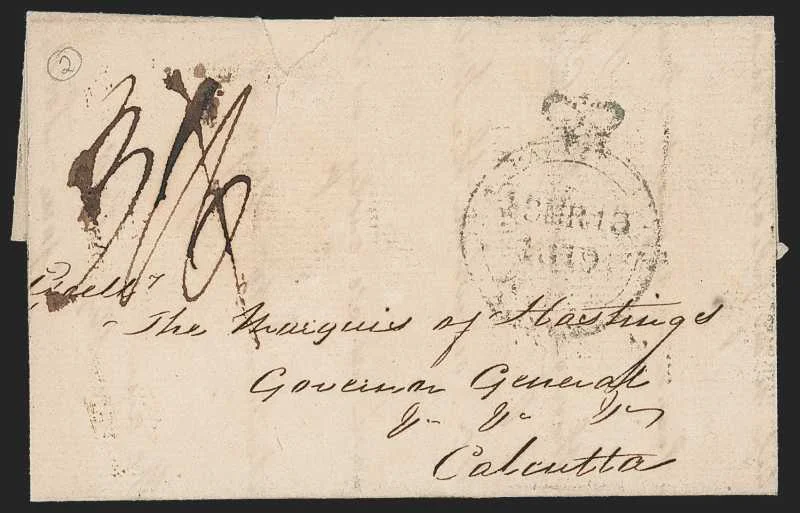 2
3/6
SEP 13
1819
The Marquis of Hastings
Governor General
&c &c &c
Calcutta